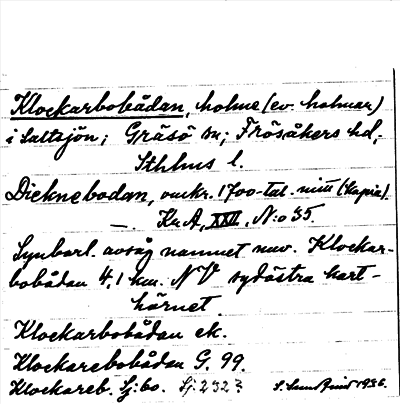 Klockarbobådan, holme (ev. holmar)
i Saltsjön; Gräsö sn; Frösåkers hd,
Sthlms l.
Dicknebodan, omkr. 1700-tal. (kopia).
Kr A, XXII, N:o 35.
Synbarl. avsåg namnet nuv. Klockar-
bobådan 4,1 km. NV sydöstra kart-
hörnet.
Klockarbobådan ek.
Klockarebobådan G. 99.
Klockareb. Sj:bo. Sj: 2323 1936.